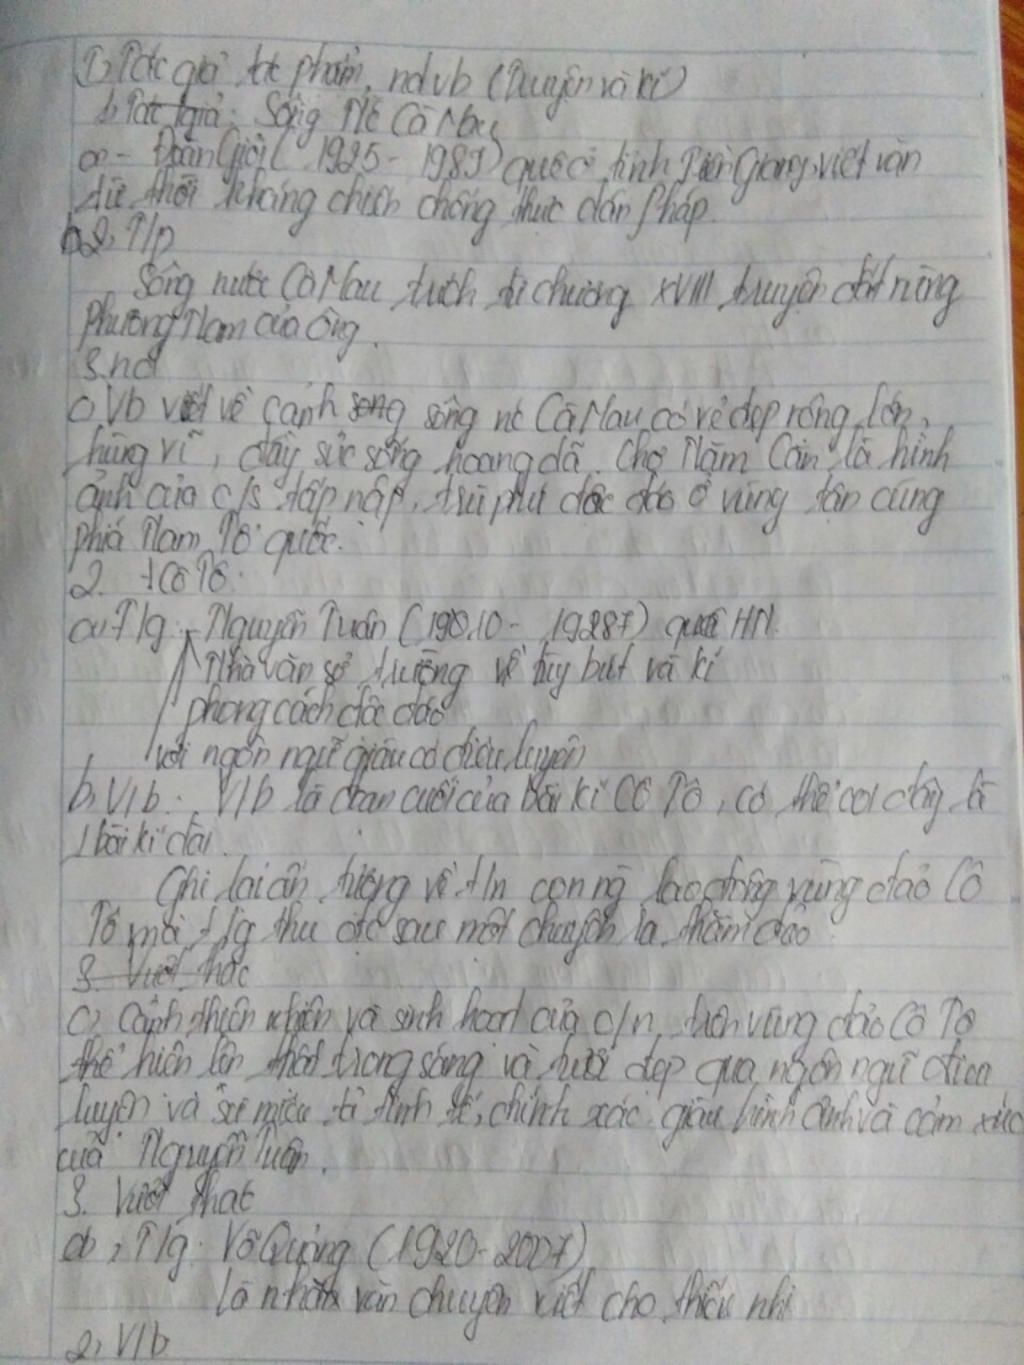 I, Tác giả tác phẩm, ndvb (Truyện và kí)
1, Tác giả: Sông Nc Cà Mau
a - Đoàn Giỏi ( 1925 - 1989) quê ở tỉnh Tiền Giang, viết văn
từ thời kháng chiến chống thực dân Pháp.
b 2, T/p
Sông nước Cà Mau trích từ chương XVIII truyện đất rừng
Phương Nam của ông.
3. nd
c, Vb viết về cảnh sông nc Cà Mau có vẻ đẹp rộng lớn,
hùng vĩ, đầy sức sống hoang dã. Chợ Năm Căn là hình
ảnh của c/s tấp nập, trù phú độc đáo ở vùng tận cùng
phía Nam Tổ quốc.
2. + Cô Tô.
a, T/g - Nguyễn Tuân (1910 - 1987) quê HN.
Nhà văn sở trường về tùy bút và kí
phong cách độc đáo
với ngôn ngữ giàu có điêu luyện
b, V/b: V/b là đoạn cuối của bài kí Cô Tô, có thể coi đây là
1 bài kí dài.
Ghi lại ấn tượng về t/n con ng lao động vùng đảo Cô
Tô mà t/g thu đc sau một chuyến ra thăm đảo
3. Vượt thác
c, Cảnh thiên nhiên và sinh hoạt của c/n trên vùng đảo Cô Tô
thể hiện lên thật trong sáng và tươi đẹp qua ngôn ngữ điêu
luyện và sự miêu tả tinh tế, chính xác giàu hình ảnh và cảm xúc
của Nguyễn Tuân.
3. Vượt thác
a, T/g: Võ Quảng (1920-2007)
là nhà văn chuyên viết cho thiếu nhi
2, V/b